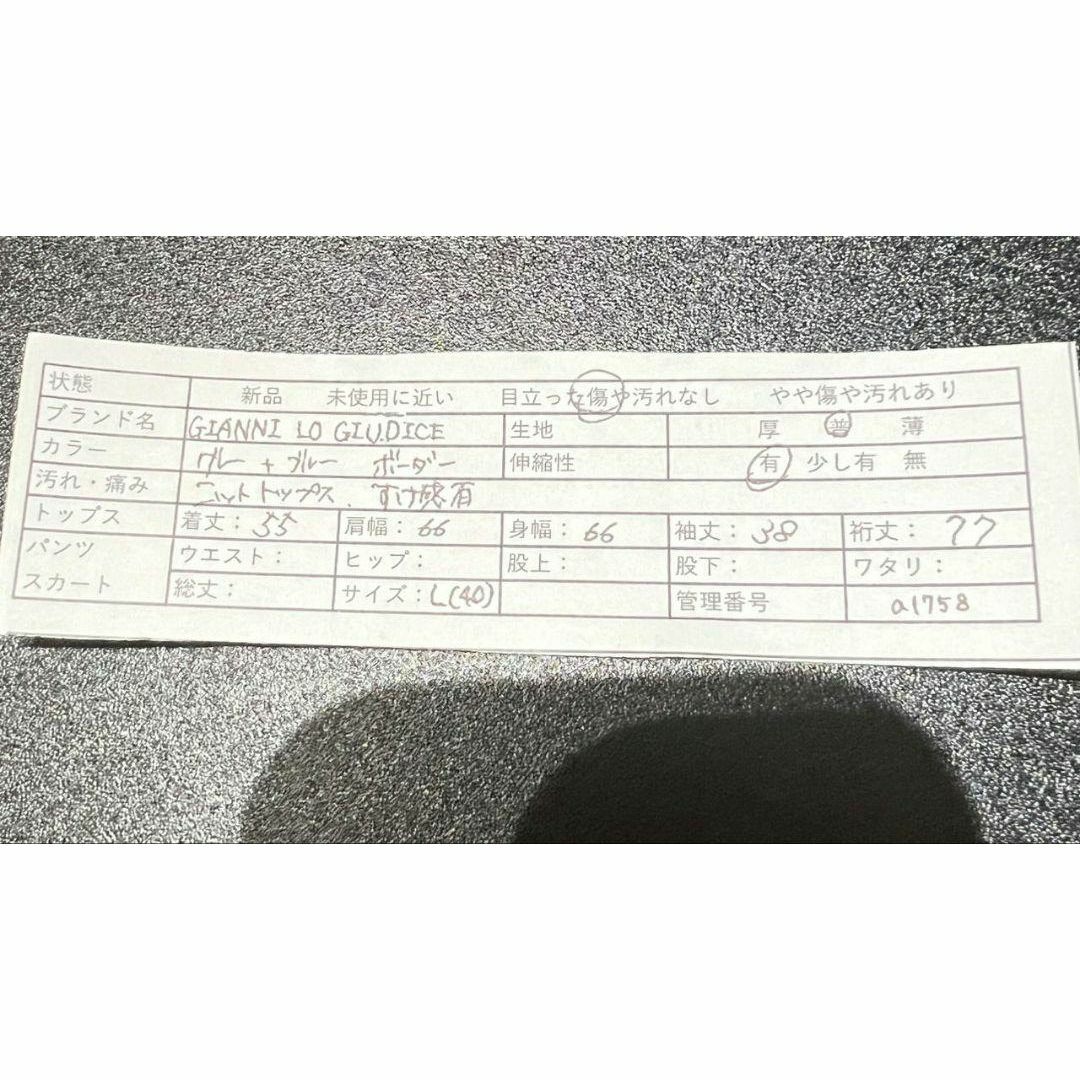 状態 新品 未使用に近い 目立った傷や汚れなし やや傷や汚れあり
ブランド名 GIANNI LO GIUDICE 生地 厚 普 薄
カラー グレー + ブルー ボーダー 伸縮性 有 少し有 無
汚れ・痛み ニットトップス、すけ感有
トップス 着丈：55 肩幅：66 身幅：66 袖丈：38 裄丈：77
パンツ ウエスト： ヒップ： 股上： 股下： ワタリ：
スカート 総丈： サイズ：L(40) 管理番号 a1758